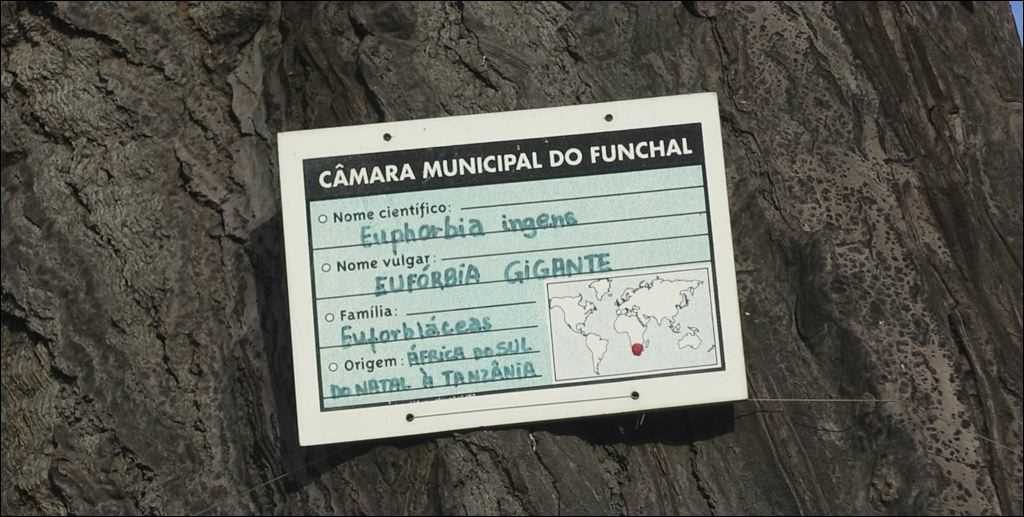 CÂMARA MUNICIPAL DO FUNCHAL
Nome científico:
Euphorbia ingens
Nome vulgar:
EUFÓRBIA GIGANTE
Família:
Euforbiáceas
Origem: ÁFRICA DO SUL
DO NATAL À TANZÂNIA